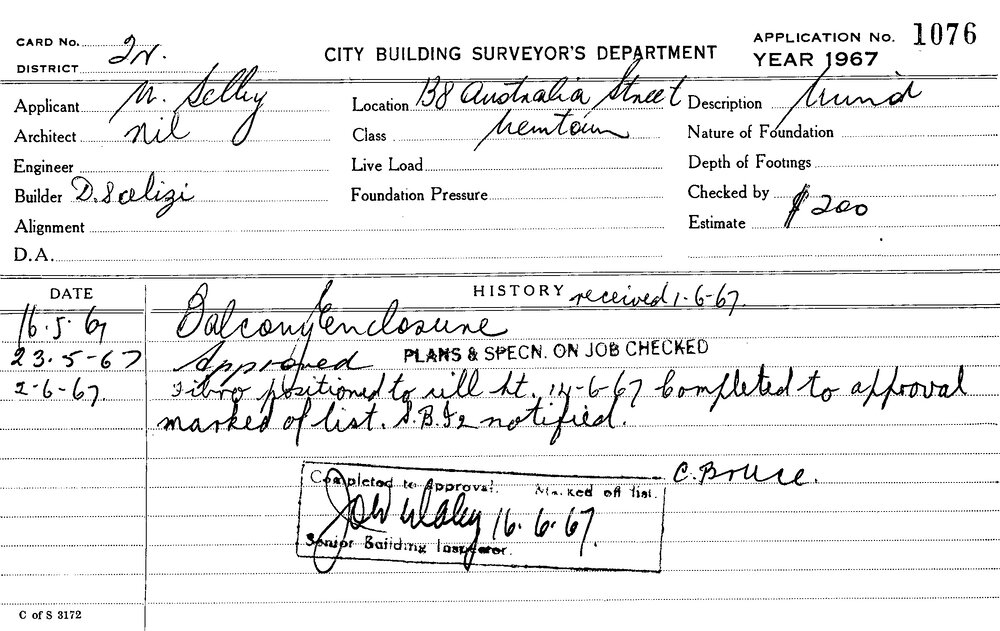 CARD No.
DISTRICT
CITY BUILDING SURVEYOR'S DEPARTMENT
APPLICATION No. 1076
YEAR 1967
Applicant N. Selby
Location 138 Australia Street
Description
Architect nil
Class
Nature of Foundation
Engineer
Live Load
Depth of Footings
Builder D. Scelizi
Foundation Pressure
Checked by
Alignment
Estimate $200
D.A.
DATE
HISTORY received 1-6-67.
16.5.67 Balcony Enclosure
23.5-67 Approved PLANS & SPECN. ON JOB CHECKED
2-6-67. Fibro positioned to sill ht. 14-6-67 Completed to approval
marked of list. S.B.I2 notified.
C. Bruce.
Completed to Approval. Marked off list.
16.6.67.
Senior Building Inspector.
C of S 3172